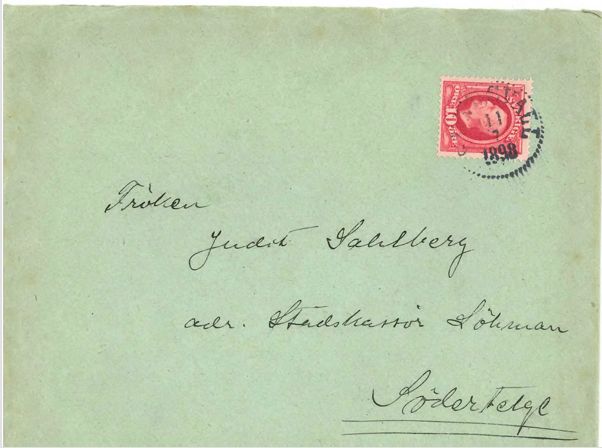 10
11
7
1898
Fröken
Judit Sahlberg
adr. Stadskassör Löhman
Södertelge